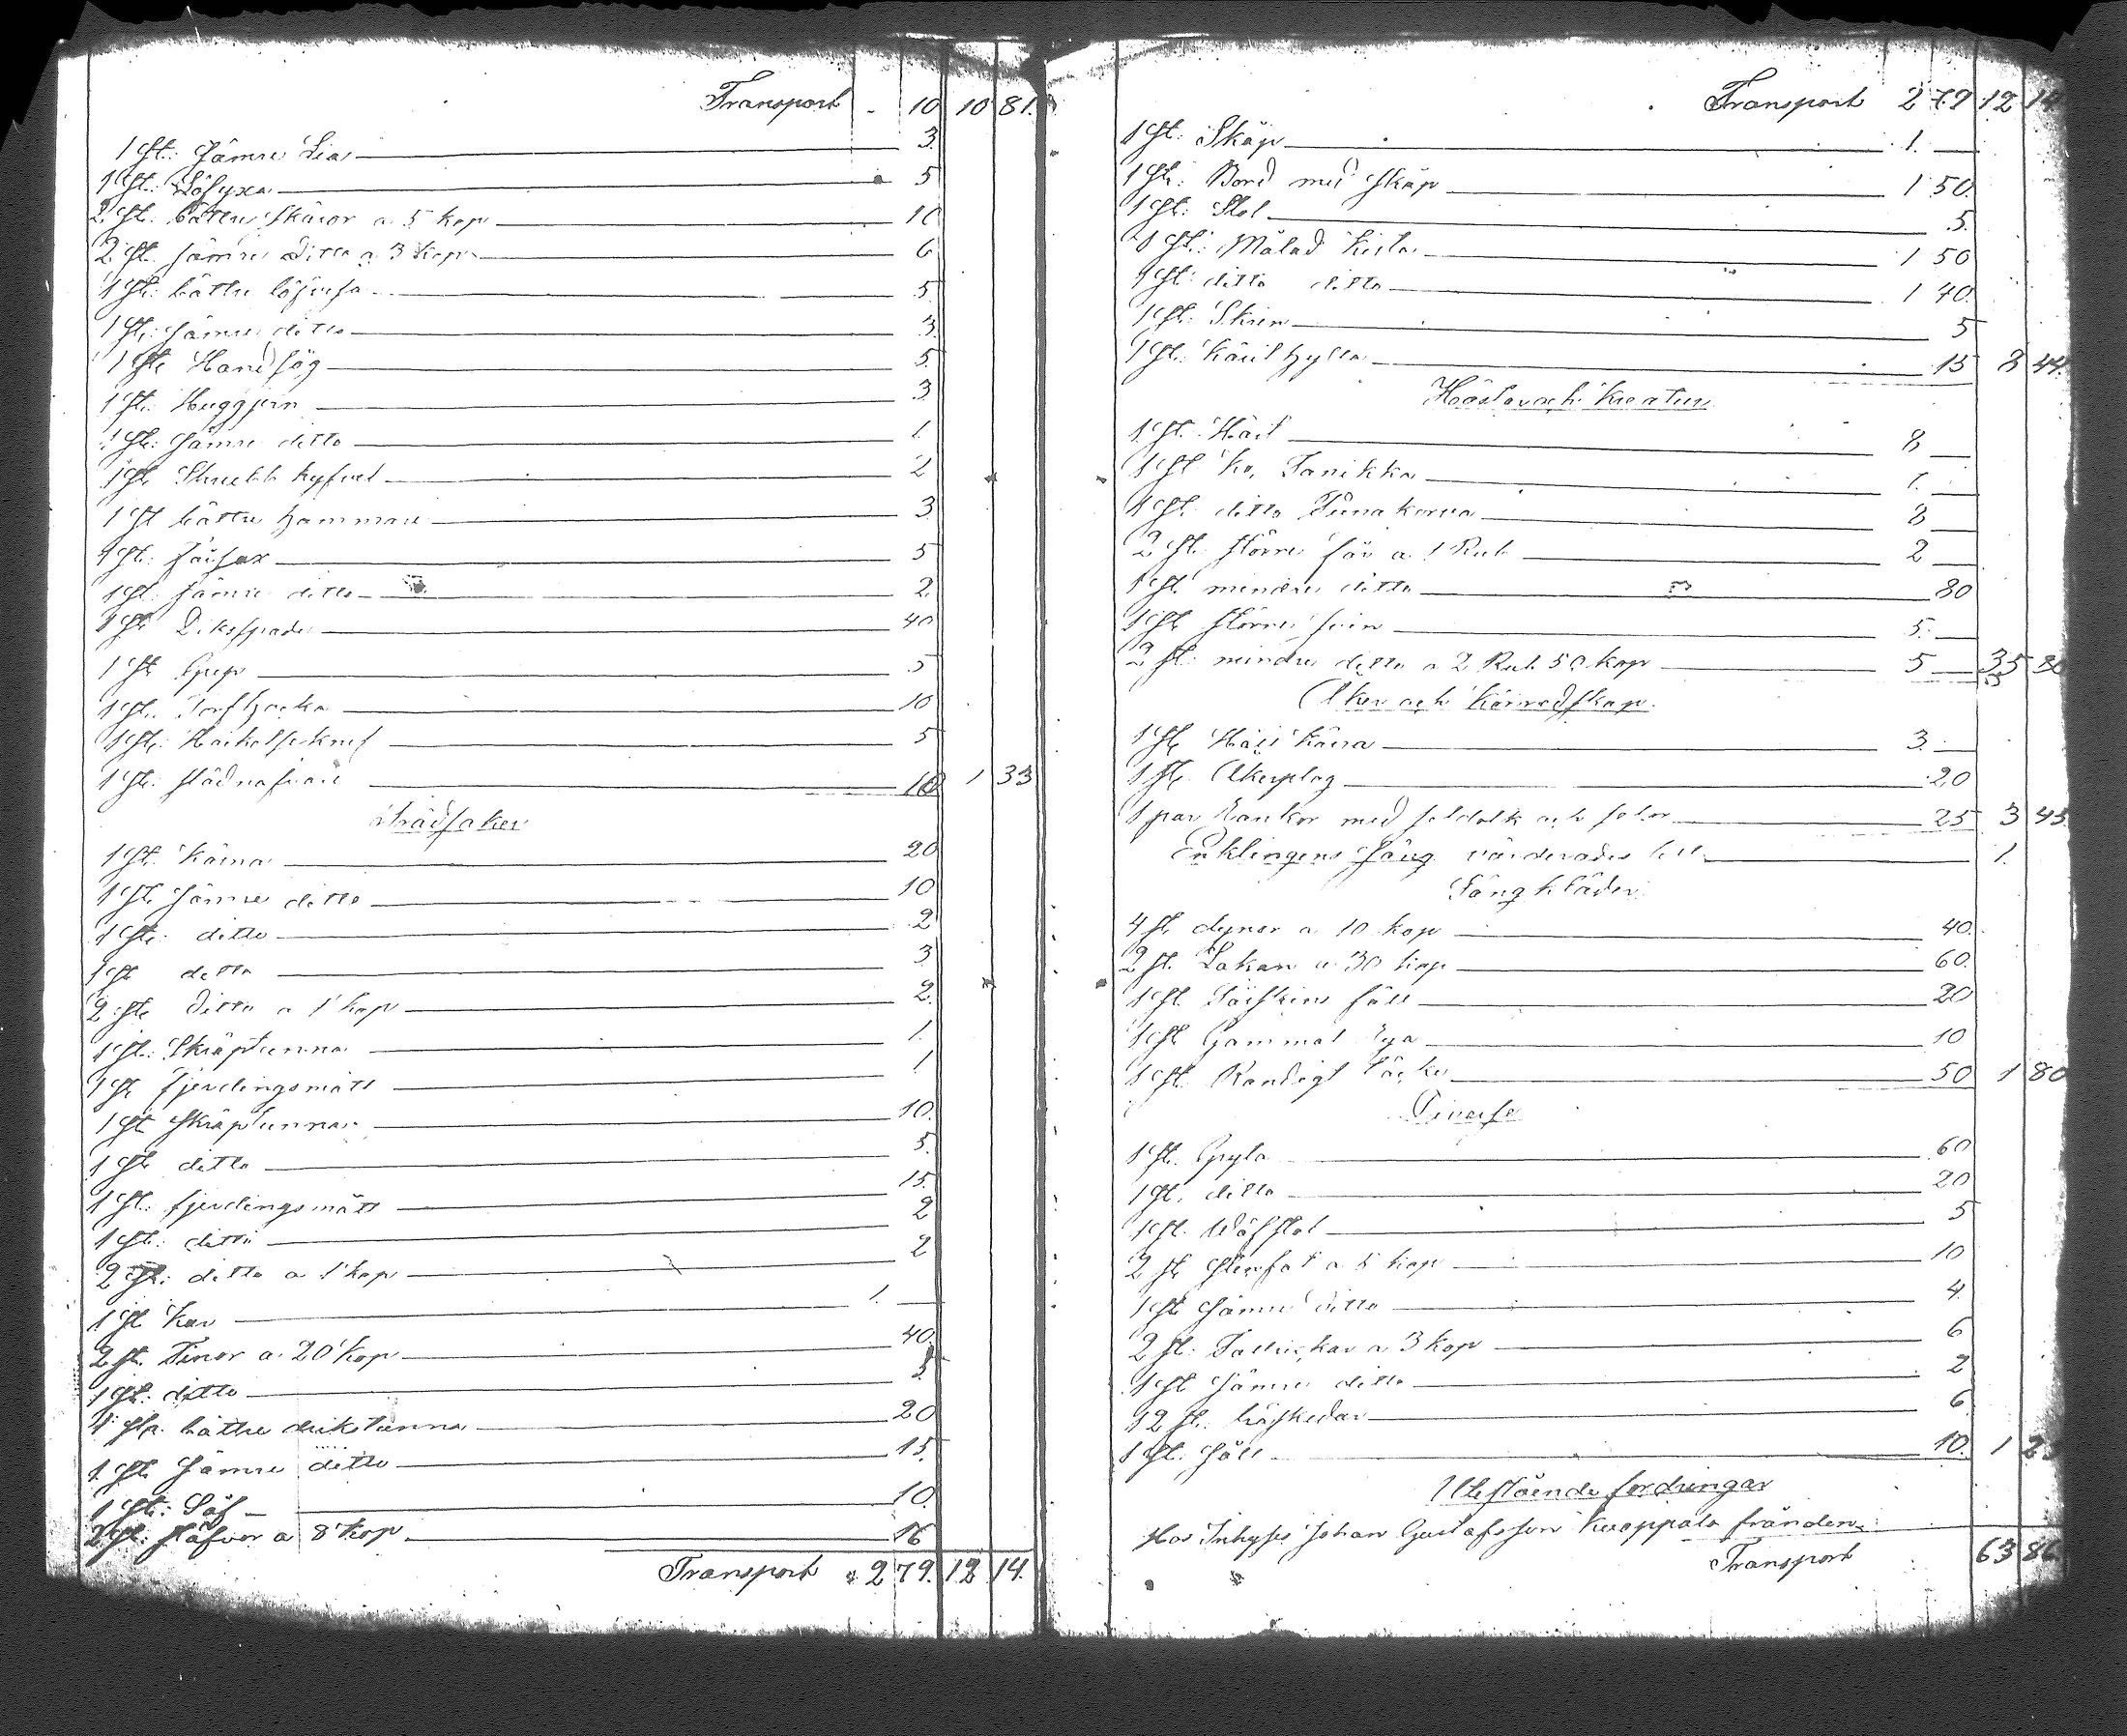 Transport - 10 10 81.
1 St: Sämre Lia 3
1 St: Löfyxa 5
2 St. bättre skäror a 5 kop 10
2 St. sämre ditto a 3 kop 6
1 St: bättre 5
1 St: sämre ditto 3
1 St: Handsåg 5
1 St: Huggjern 3
1 St: Sämre ditto 1
1 St Skrubb hyfvel 2
1 St bättre hammare 3
1 St: fårsax 5
1 St: sämre ditto 2
1 St Dikspade 40
1 St Grep 5
1 St. Torfhacka 10
1 St: Hackelseknif 5
1 St: 10 1 33
Trädsaker
1 St: Kärna 20
1 St: Sämre ditto 10
1 St: ditto 2
1 St ditto 3
2 St: ditto a 1 kop 2
1 St: Skräptunna 1
1 St fjerdingsmått 1
1 St Skräptunna 10
1 St ditto 5
1 St: fjerdingsmått 15
1 St: ditto 2
2 St: ditto a 1 kop 2
1 St Kar 1. —
2 St. Tinor a 20 kop 40
1 St: ditto 5
1 St. bättre drikstunna 20
1 St Sämre ditto 15
1 St: Såf 10
2 St: stäfvor a 8 kop 16
Transport 2 79. 12 14.
Transport 2 79 12 14
1 St: Skåp 1. —
1 St: Bord med skåp 1 50
1 St: Stol 5
1 St: Målad kista 1 50
1 St: ditto ditto 1 40
1 St: Skrin 5
1 St: Kärilhylla 15 8 44
Hästar och Kreatur
1 St. Häst 8 —
1 St Ko, Tanikka 7. —
1 St ditto Punakorva 8 —
2 St. större får a 1 Rub 2 —
1 St mindre ditto 80
1 St större svin 5. —
2 St: mindre ditto a 2 Rub. 50 kop 5 — 35 80
Åker och Körredskap
1 St Häst kärra 3. —
1 St. Åkerplog 20
1 par Rankor med seldolk och selar 25 3 45
Enklingens säng värderades till 1.
Sängkläder
4 St dynor a 10 kop 40
2 St. Lakan a 30 kop 60
1 St. Fårskins fäll 20
1 St Gammal rya 10
1 St. Randigt täcke 50 1 80
Diverse
1 St. Gryta 60
1 St. ditto 20
1 St. Wäfstol 5
2 St stenfat a 5 kop 10
1 St Sämre ditto 4
2 St: a 3 kop 6
1 St Sämre ditto 2
12 St: träskedar 6
1 St: Såll 10. 1 23
Utestående fordringar
Hos Inhyses Johan Gustafsson Knappala
Transport 63 86